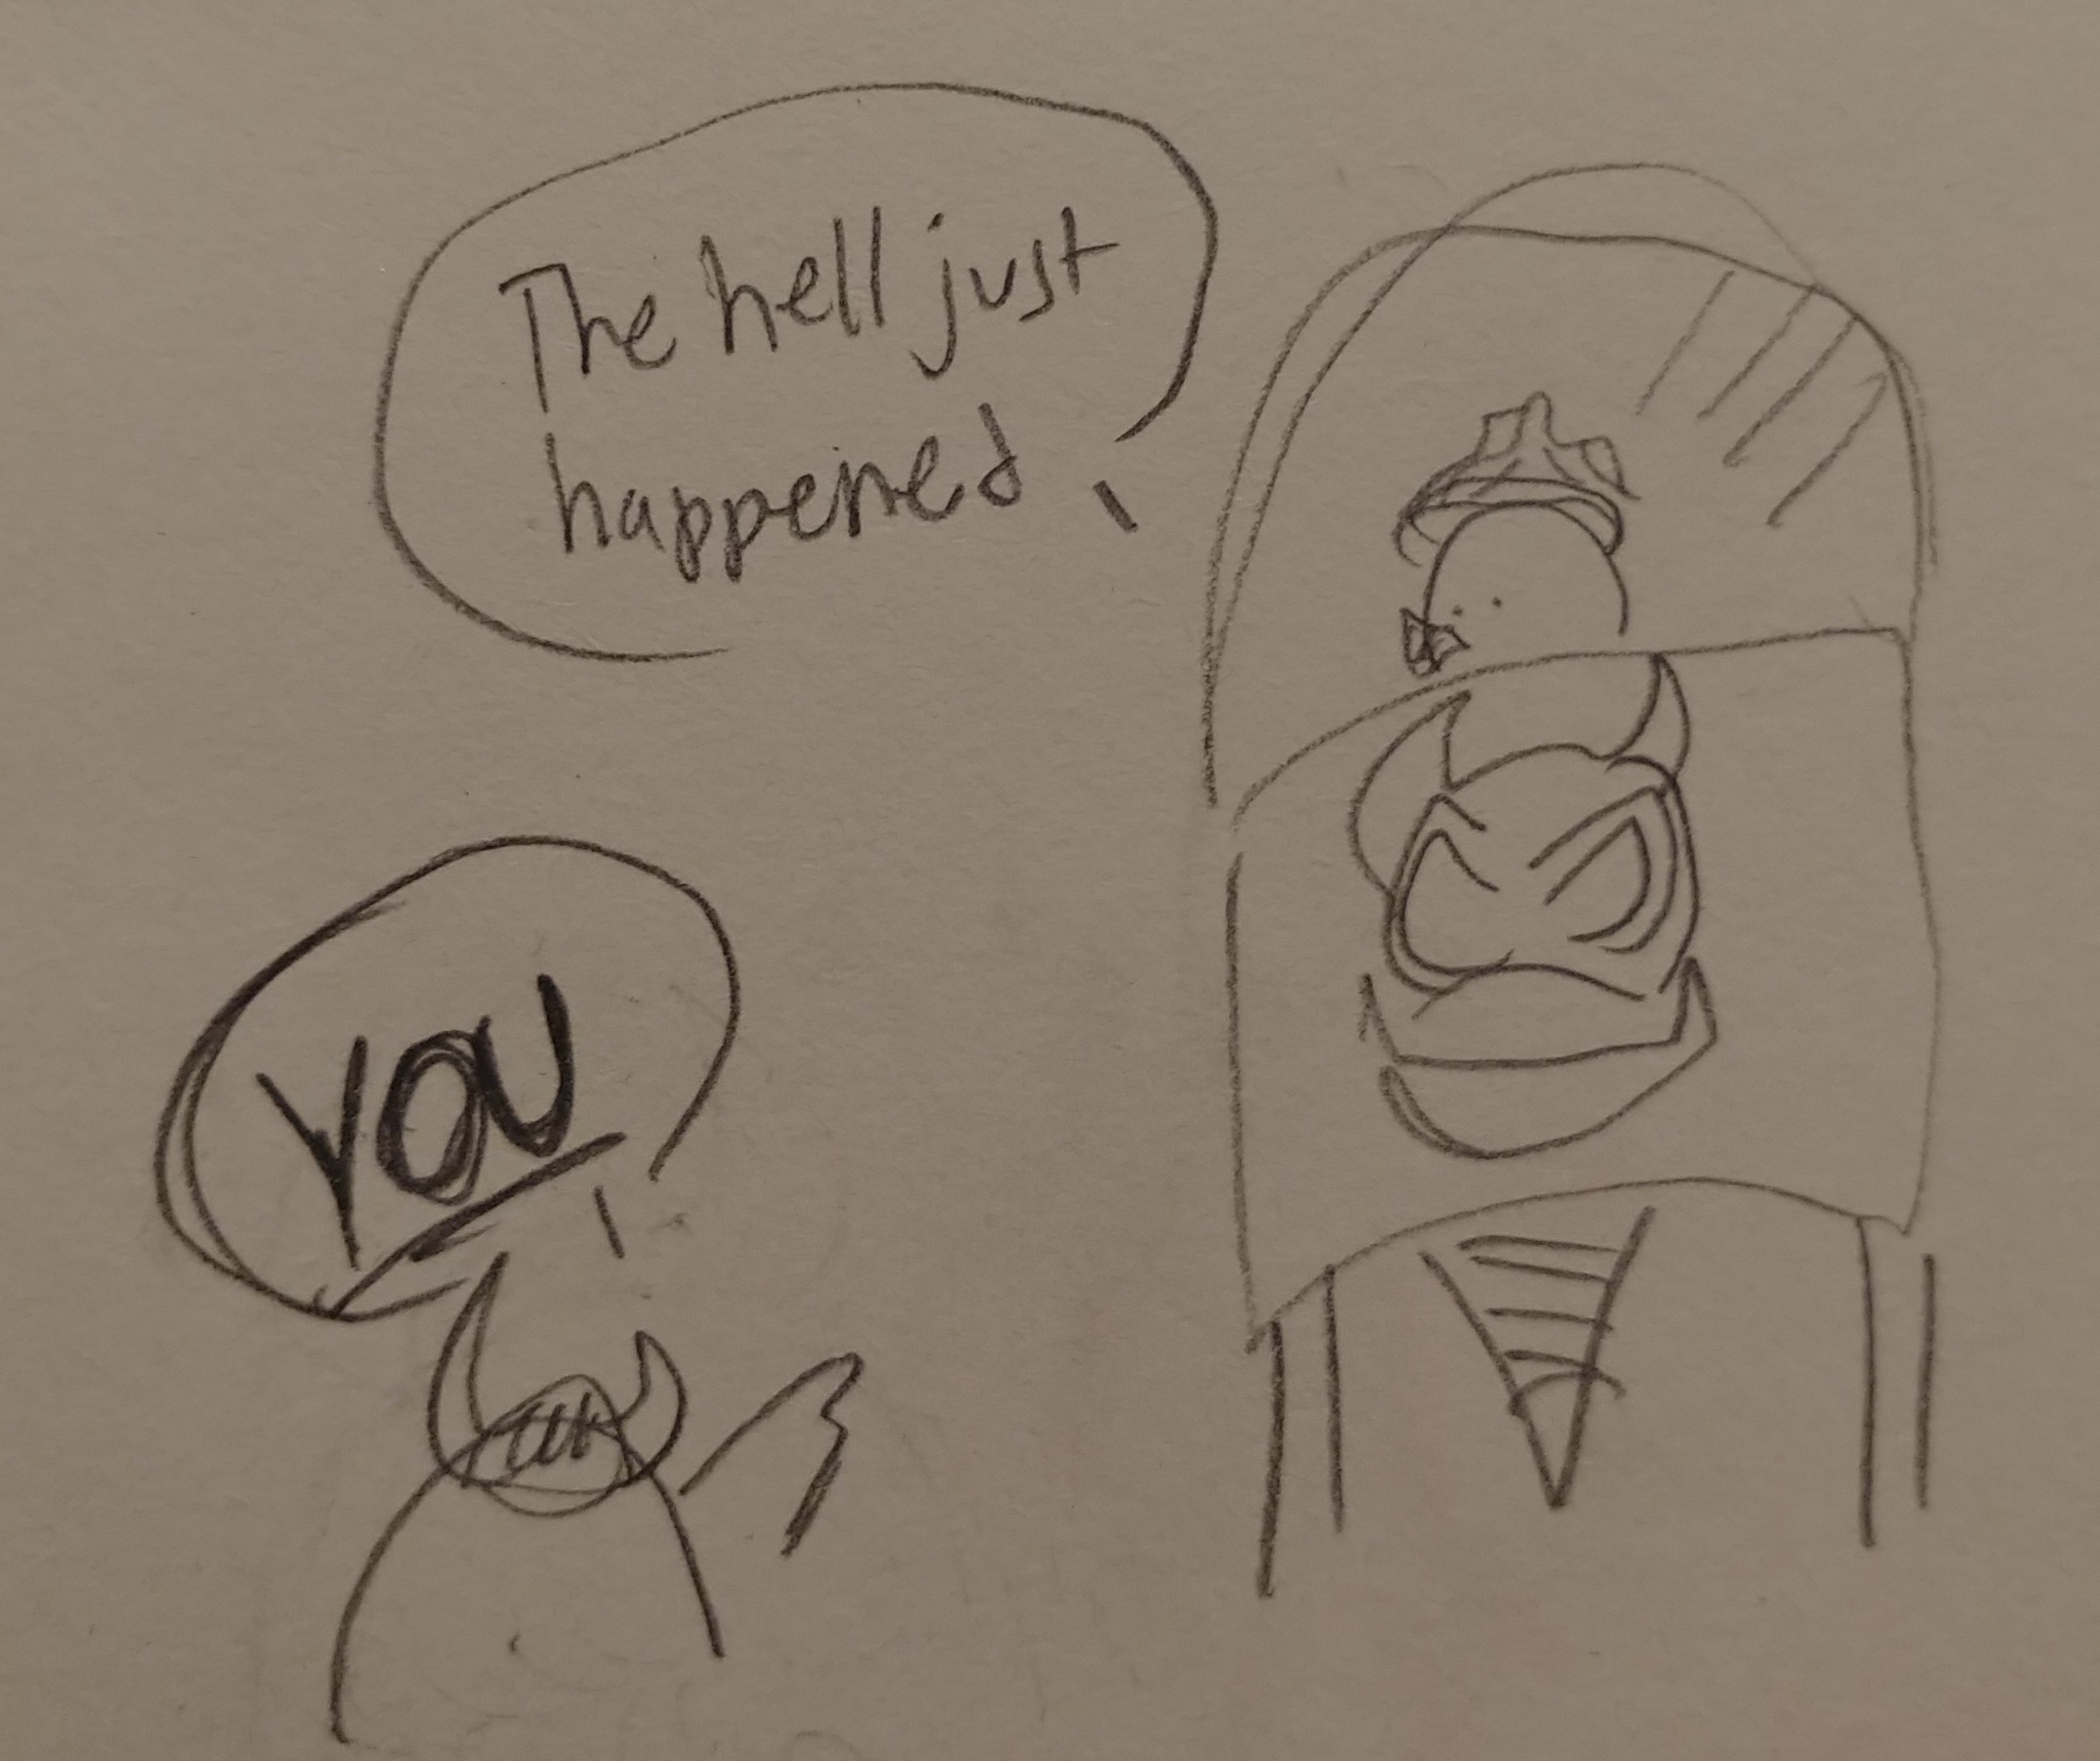 The hell just
happened
YOU